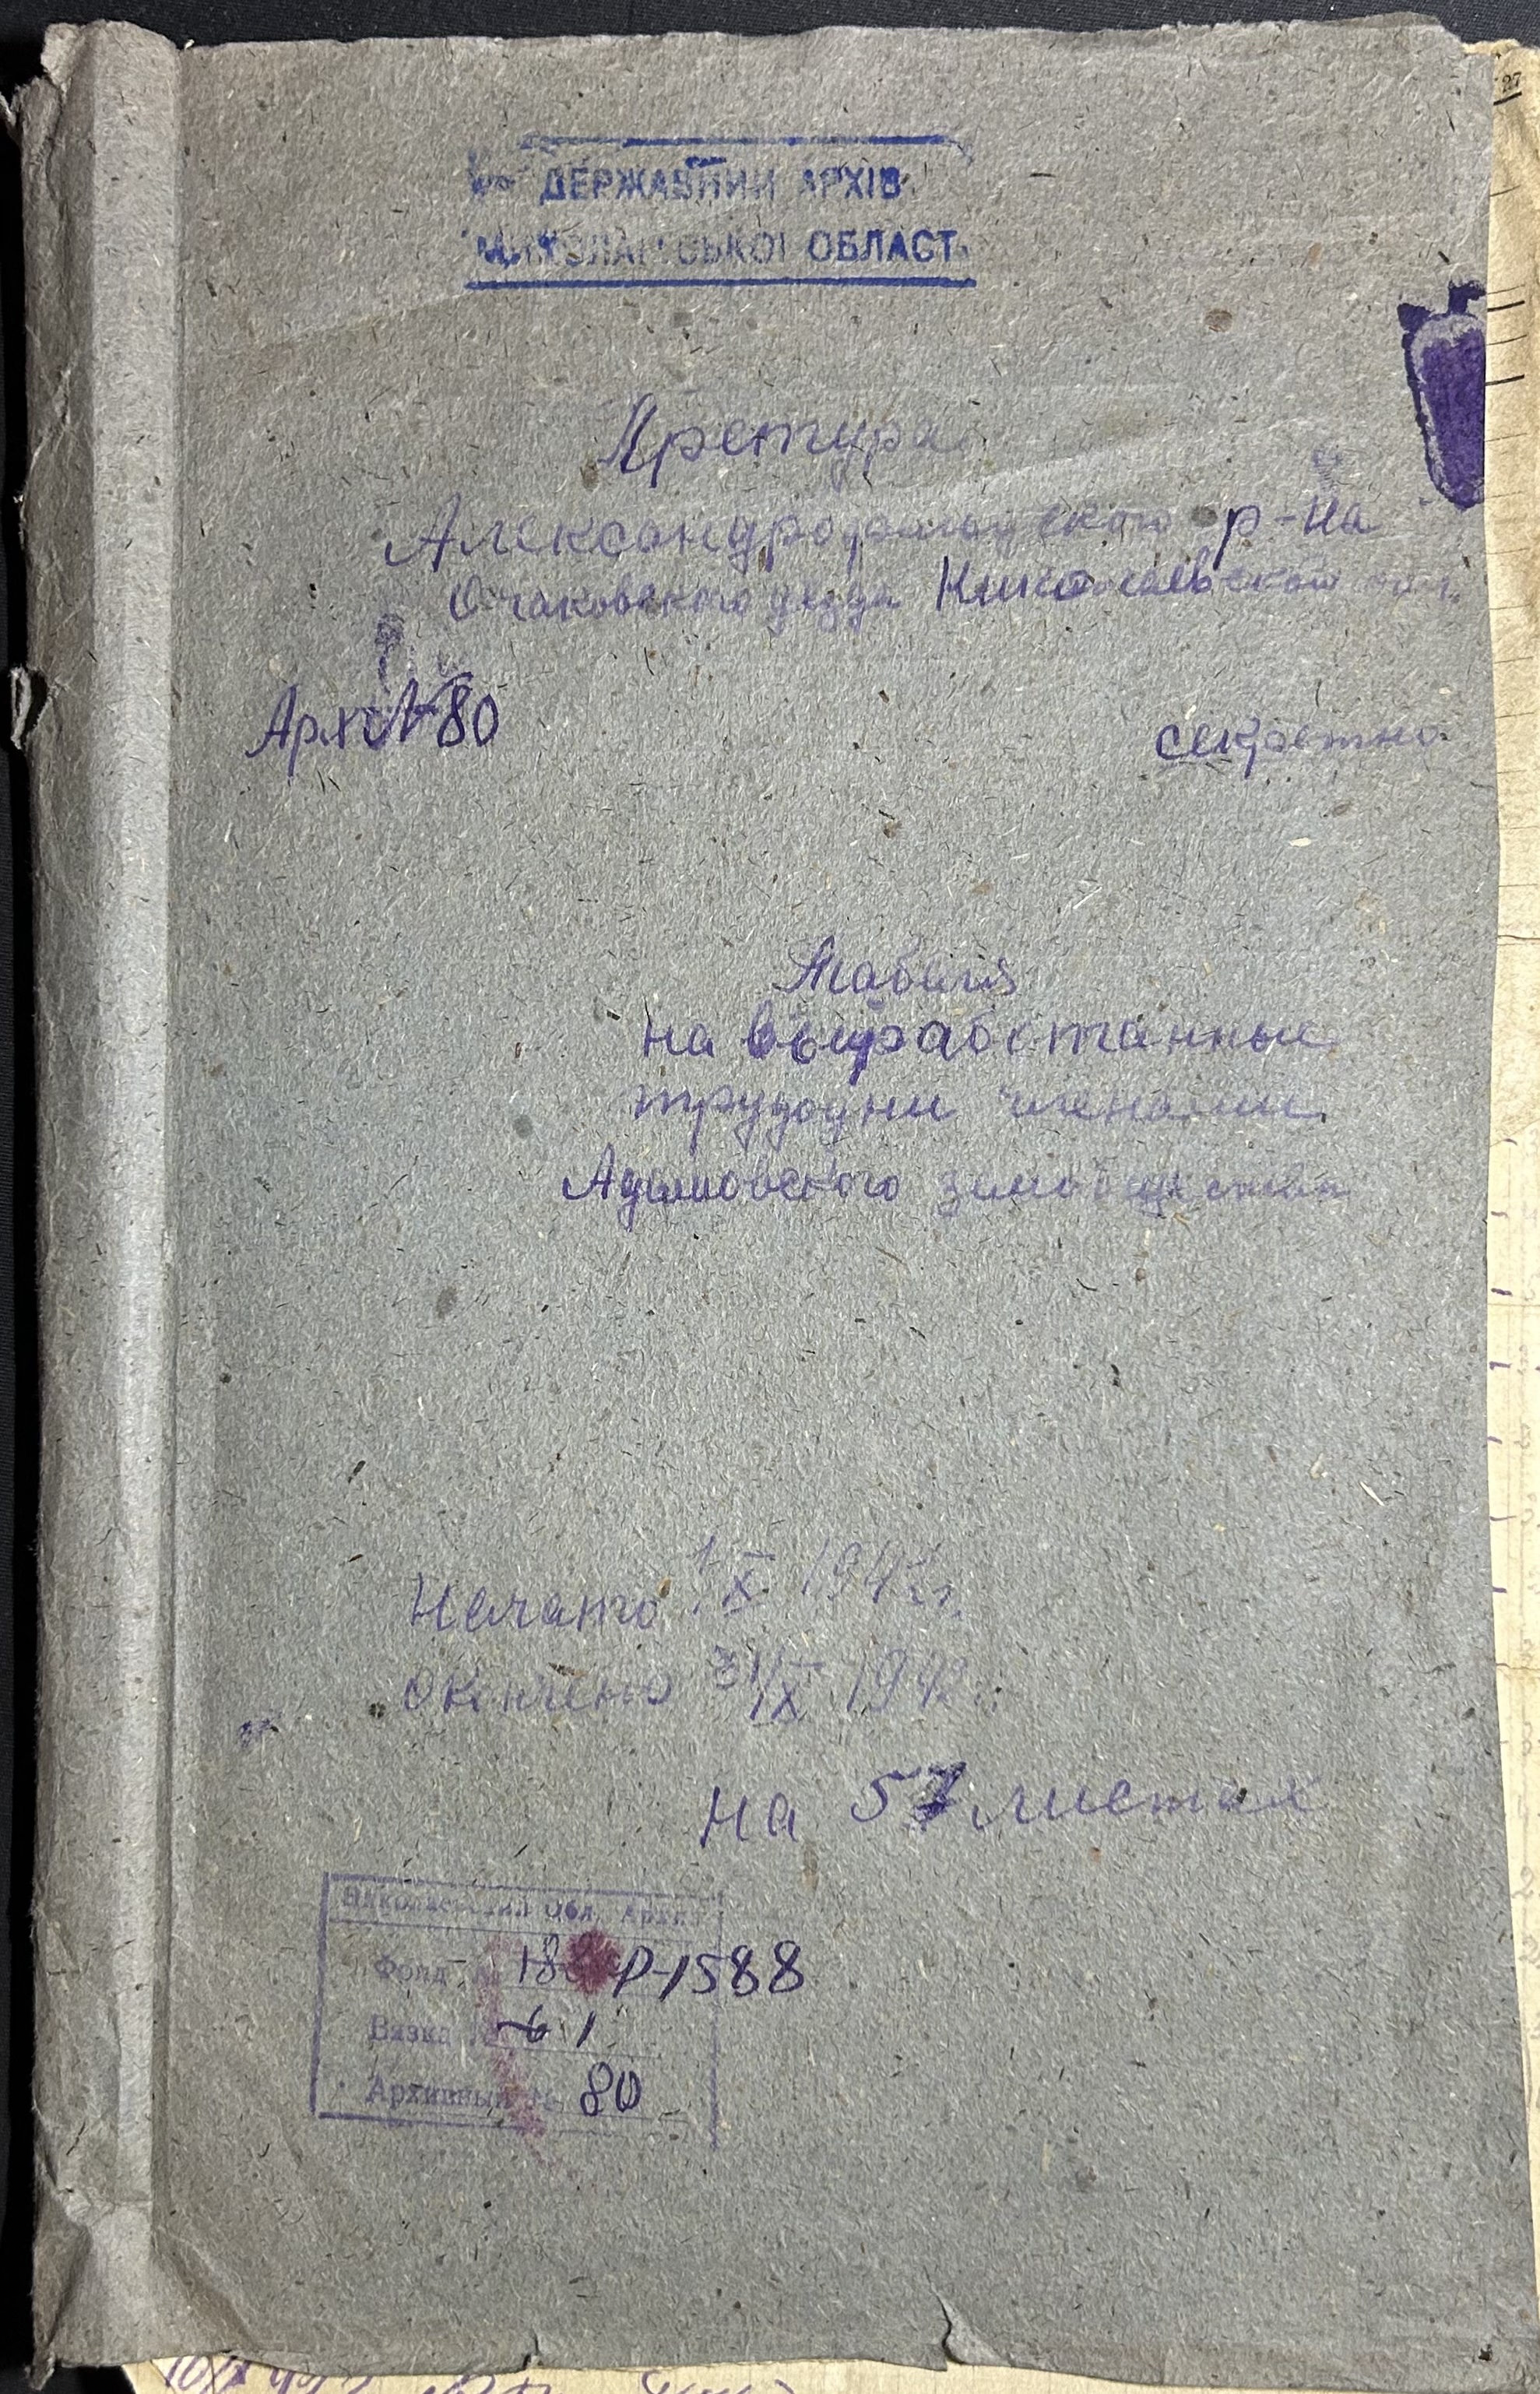 ДЕРЖАВНИЙ АРХІВ
МИКОЛАЇВСЬКОЇ ОБЛАСТІ
Претура
Александродарского р-на
Очаковского уезда Николаевской обл.
Арх. № 80
секретно
Табеля
на выработанные
трудодни членами
Адамовского земобщества
Начато 1/IX 1942 г.
Окончено 31/IX 1942 г.
на 57 листах
Николаевский Обл. Архив
Фонд № Р-1588
Вязка № 61
Архивный № 80